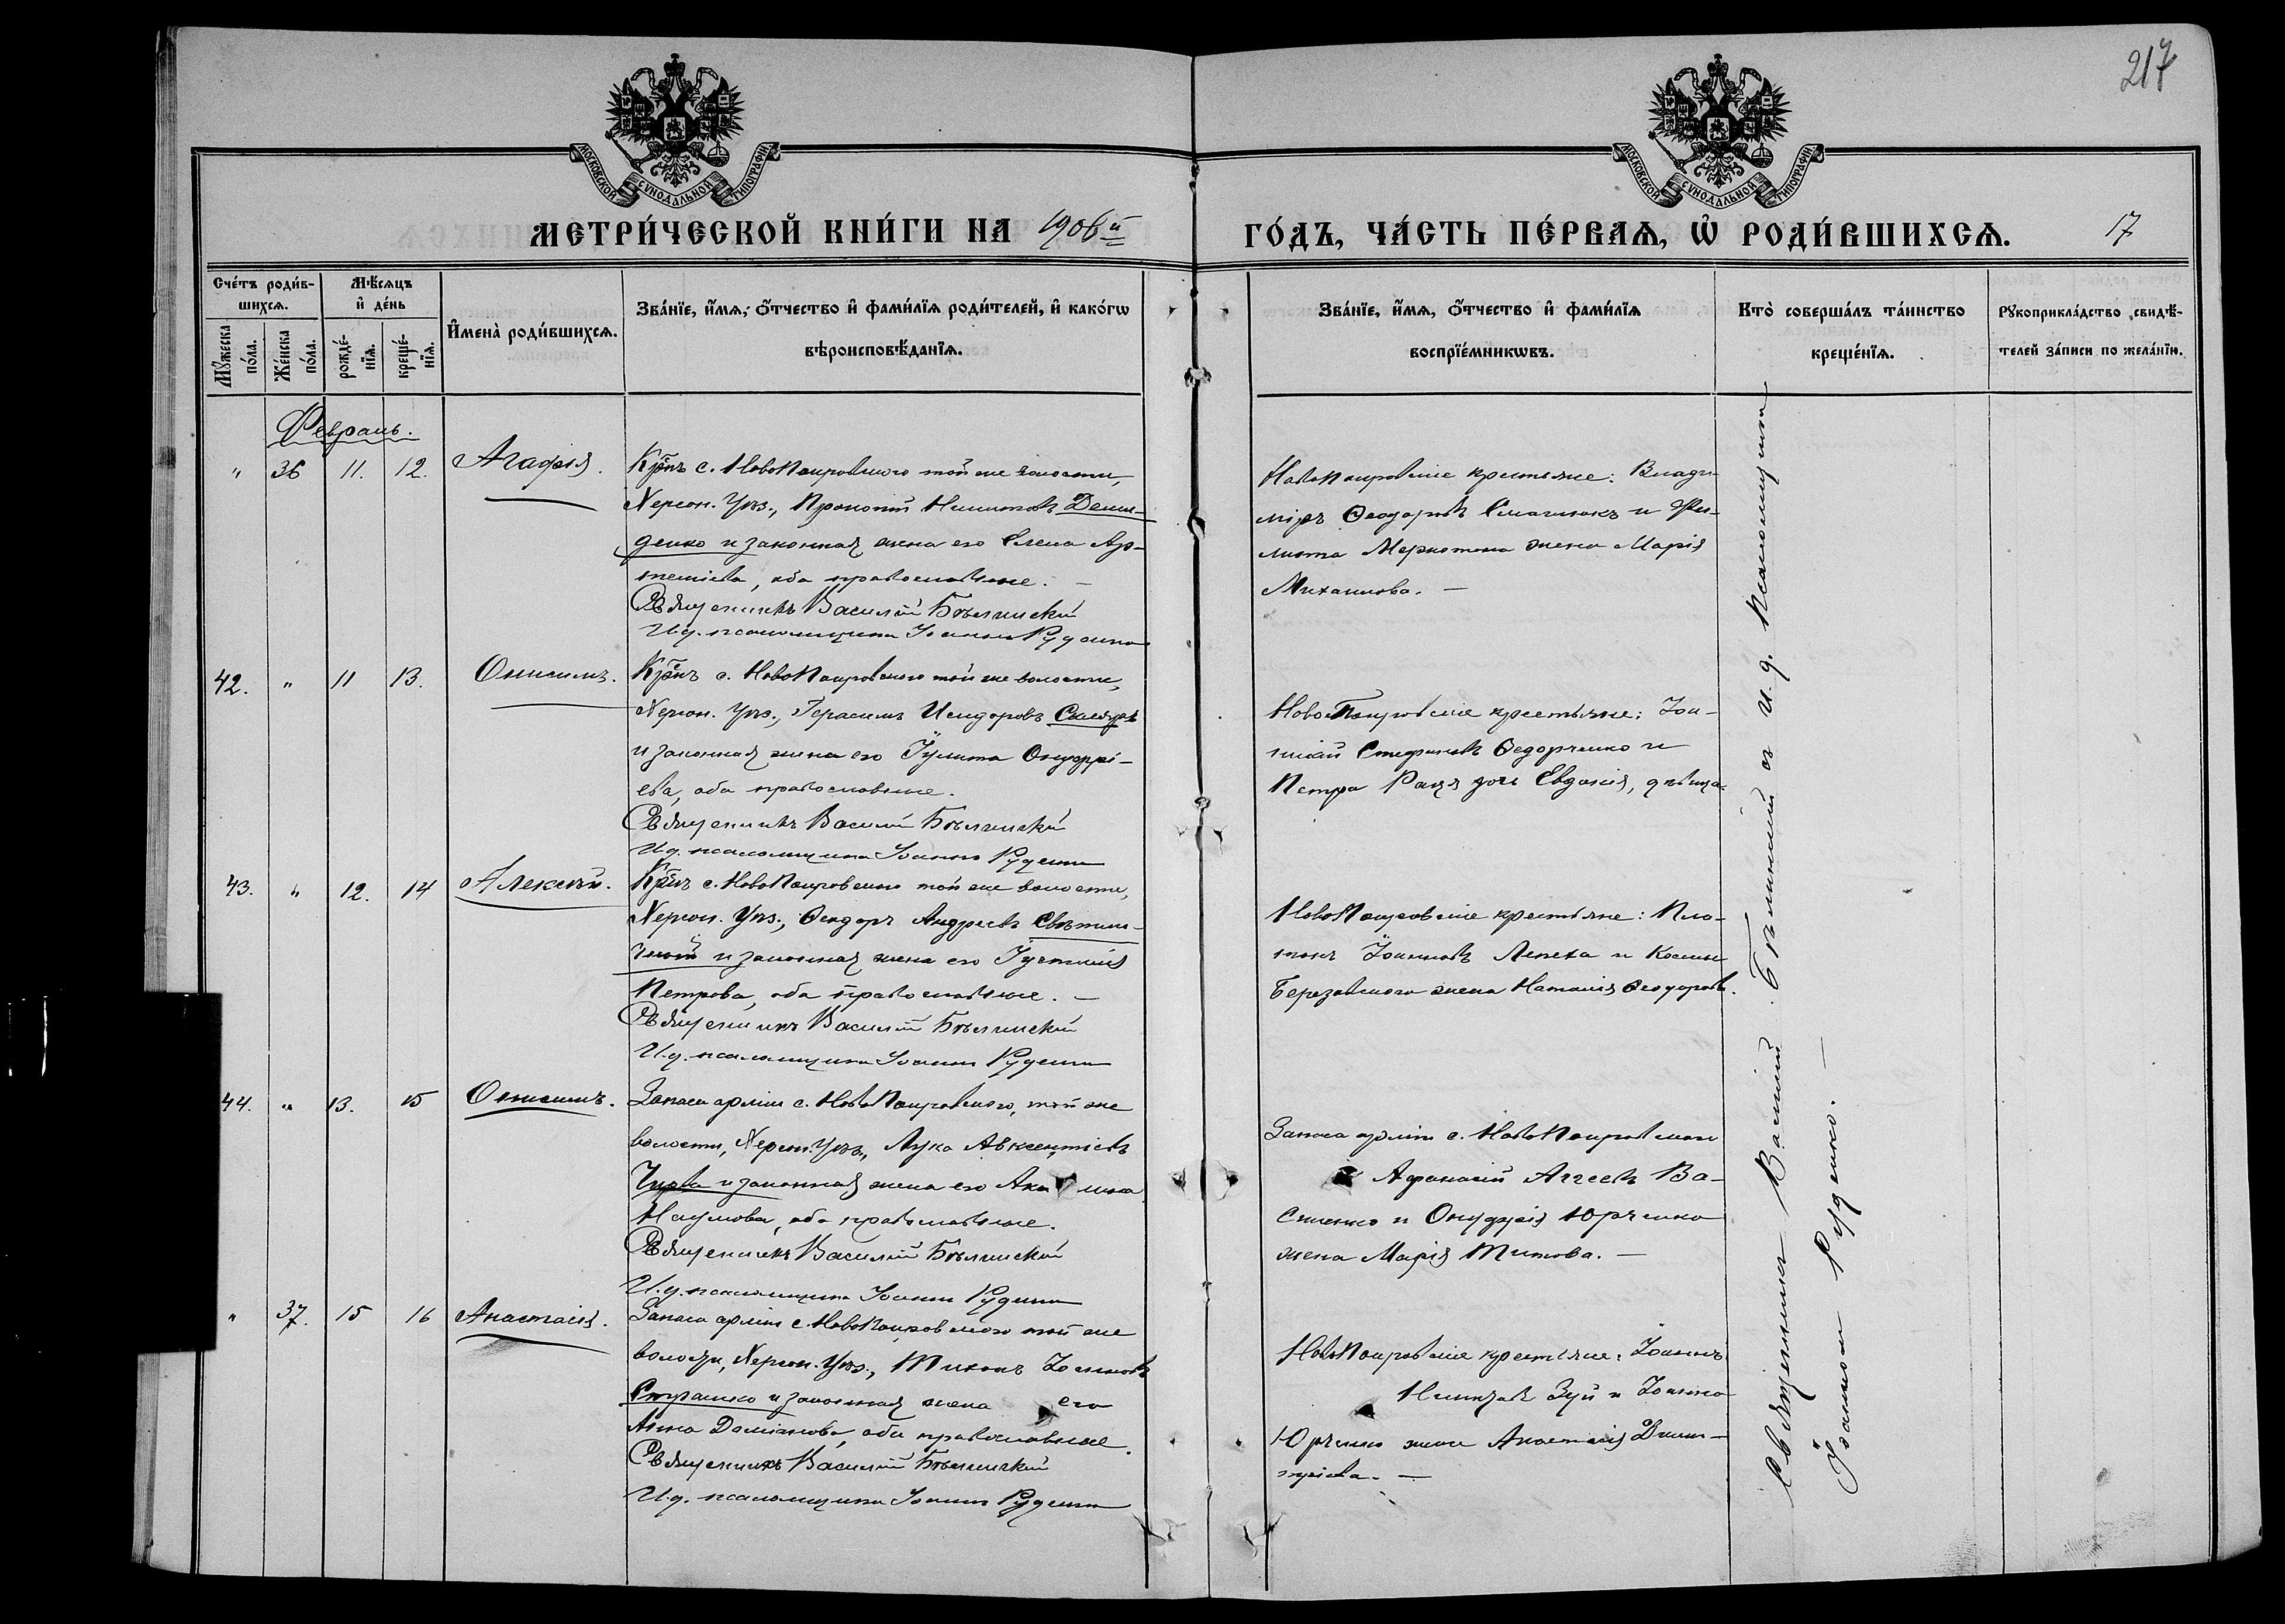 217
МОСКОВСКОЙ СѴНОДАЛЬНОЙ ТИПОГРАФІИ
МОСКОВСКОЙ СѴНОДАЛЬНОЙ ТИПОГРАФІИ
МЕТРИ́ЧЕСКОЙ КНИ́ГИ НА 1906й
ГО́ДЪ, ЧА́СТЬ ПЕ́РВАѦ, Ѡ҆ РОДИ́ВШИХСѦ.
17
Сче́тъ роди́в-
шихсѧ.
Мꙋ́жеска по́ла.
Же́нска по́ла.
Мѣ́сѧцъ
и҆ де́нь
рожде́-
нїѧ.
креще́-
нїѧ.
И҆мена̀ роди́вшихсѧ.
Зва́нїе, и҆́мѧ, ѻ҆́тчество и҆ фами́лїѧ роди́телей, и҆ како́гѡ
вѣроисповѣ́данїѧ.
Зва́нїе, и҆́мѧ, ѻ҆́тчество и҆ фами́лїѧ
воспрїе́мникѡвъ.
Кто̀ соверша́лъ та́инство
креще́нїѧ.
Рꙋкоприкла́дство свидѣ́-
телей за́писи по жела́нїю.
Февраль.
" 36 11. 12. Агафія.
Кр-нъ с. НовоПокровскаго той же волости,
Херсон. Уѣз., Прокопій Никитовъ Деми-
денко и законная жена его Елена Ар-
темьева, оба православные. —
Священникъ Василій Бѣлинскій
И.д. псаломщика Іоаннъ Руденко
НовоПокровскіе крестьяне: Влади-
міръ Ѳеодоровъ
жена Марія
Михаилова. —
42. " 11 13. Онисимъ.
Кр-нъ с. НовоПокровскаго той же волости,
Херсон. Уѣз., Герасимъ Исидоровъ
и законная жена его Іулита Онуфрі-
ева, оба православные.
Священникъ Василій Бѣлинскій
И.д. псаломщика Іоаннъ Руденко
НовоПокровскіе крестьяне: Іоан-
никій Стефановъ Ѳедорченко и
Петра Раца дочь Евдокія, дѣвица.
43. " 12. 14 Алексѣй.
Кр-нъ с. НовоПокровскаго той же волости,
Херсон. Уѣз., Ѳеодоръ Андреевъ Свѣтли-
чный и законная жена его Іустинія
Петрова, оба православные. —
Священникъ Василій Бѣлинскій
И.д. псаломщика Іоаннъ Руденко
НовоПокровскіе крестьяне: Пла-
тонъ Іоанновъ Лепеха и Космы
Березовскаго жена Наталія Ѳеодоров.
44. " 13. 15 Онисимъ.
Запаса арміи с. НовоПокровскаго, той же
волости, Херсон. Уѣз., Лука Авксентіевъ
Чирва и законная жена его Акилина
Наумова, оба православные.
Священникъ Василій Бѣлинскій
И.д. псаломщика Іоаннъ Руденко
Запаса арміи с. НовоПокровскаго
Афанасій Аггеевъ Ва-
силенко и Онуфрія Юрченко
жена Марія Титова. —
" 37. 15 16 Анастасія.
Запаса арміи с. НовоПокровскаго той же
волости, Херсон. Уѣз., Тихонъ Іоанновъ
и законная жена его
Анна Даміанова, оба православные.
Священникъ Василій Бѣлинскій
И.д. псаломщика Іоаннъ Руденко
НовоПокровскіе крестьяне: Іоаннъ
Зуй и Іоанна
Юрченко жена Анастасія Дими-
тріева. —
Священникъ Василій Бѣлинскій съ и. д. псаломщика
Іоанномъ Руденко. —